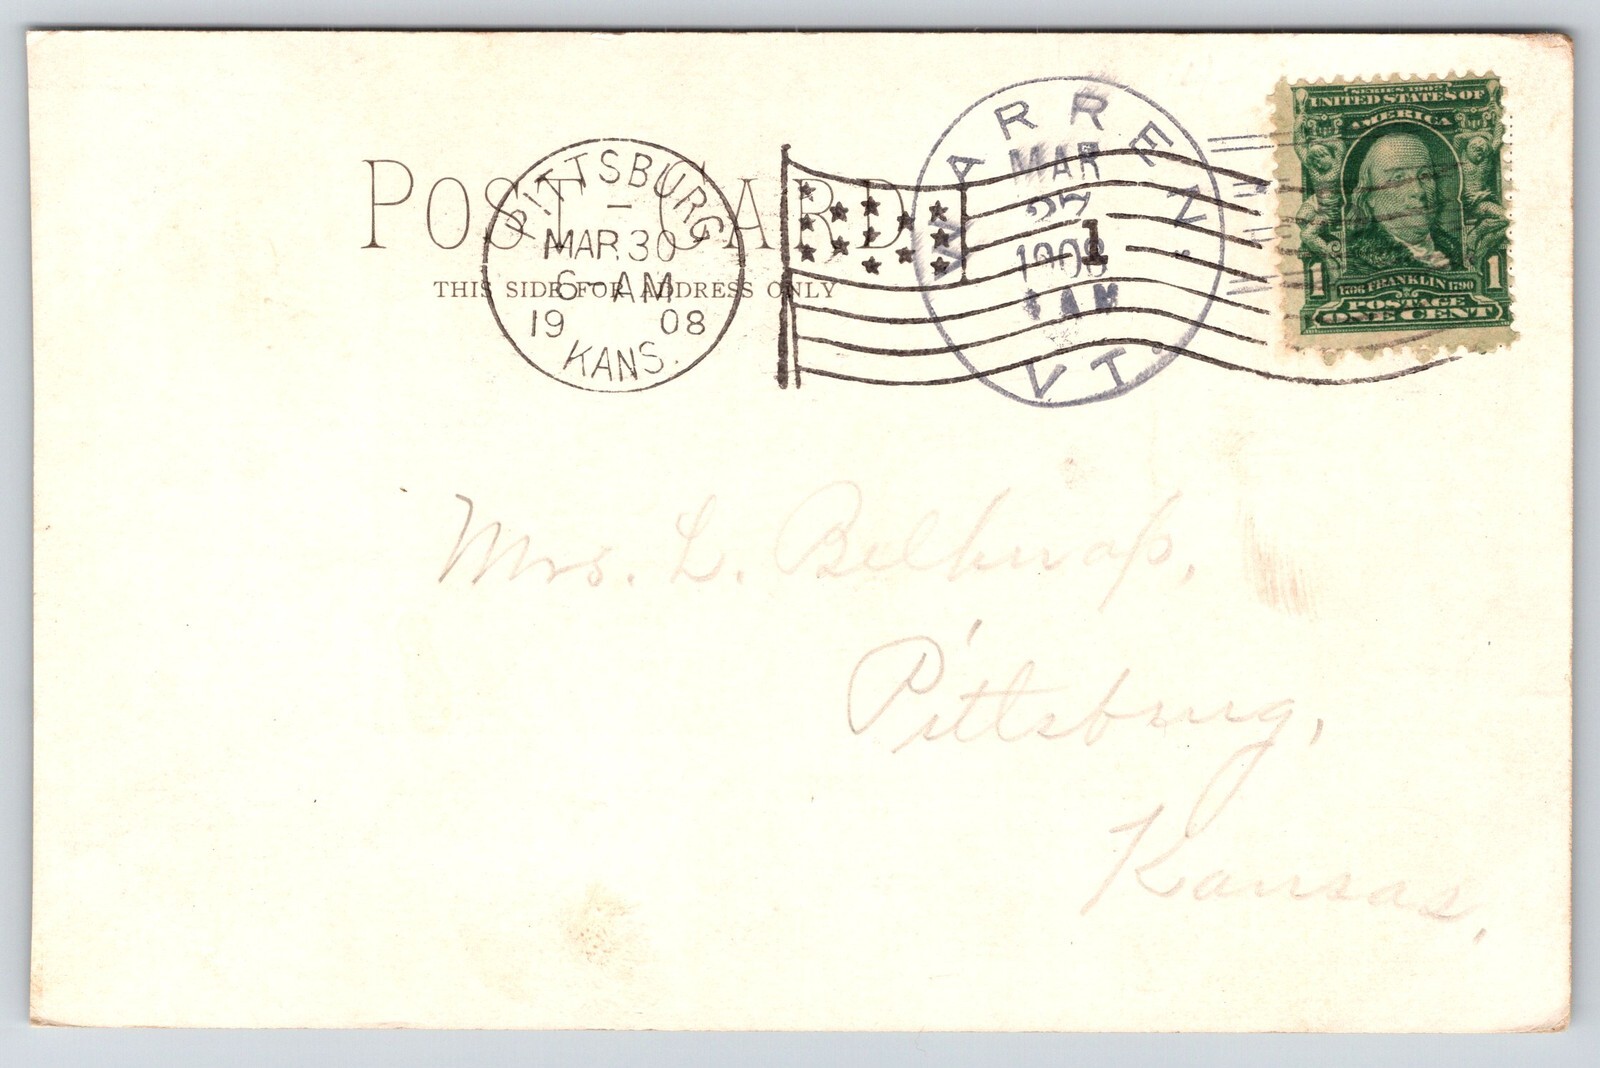 POST-CARD
THIS SIDE FOR ADDRESS ONLY
PITTSBURG
MAR 30
6- AM
19 08
KANS.
1
WARREN
MAR
27
1908
AM
VT.
SERIES 1902
UNITED STATES OF
AMERICA
1 1706 FRANKLIN 1790 1
POSTAGE
ONE CENT
Mrs. L. Belknap,
Pittsburg,
Kansas,